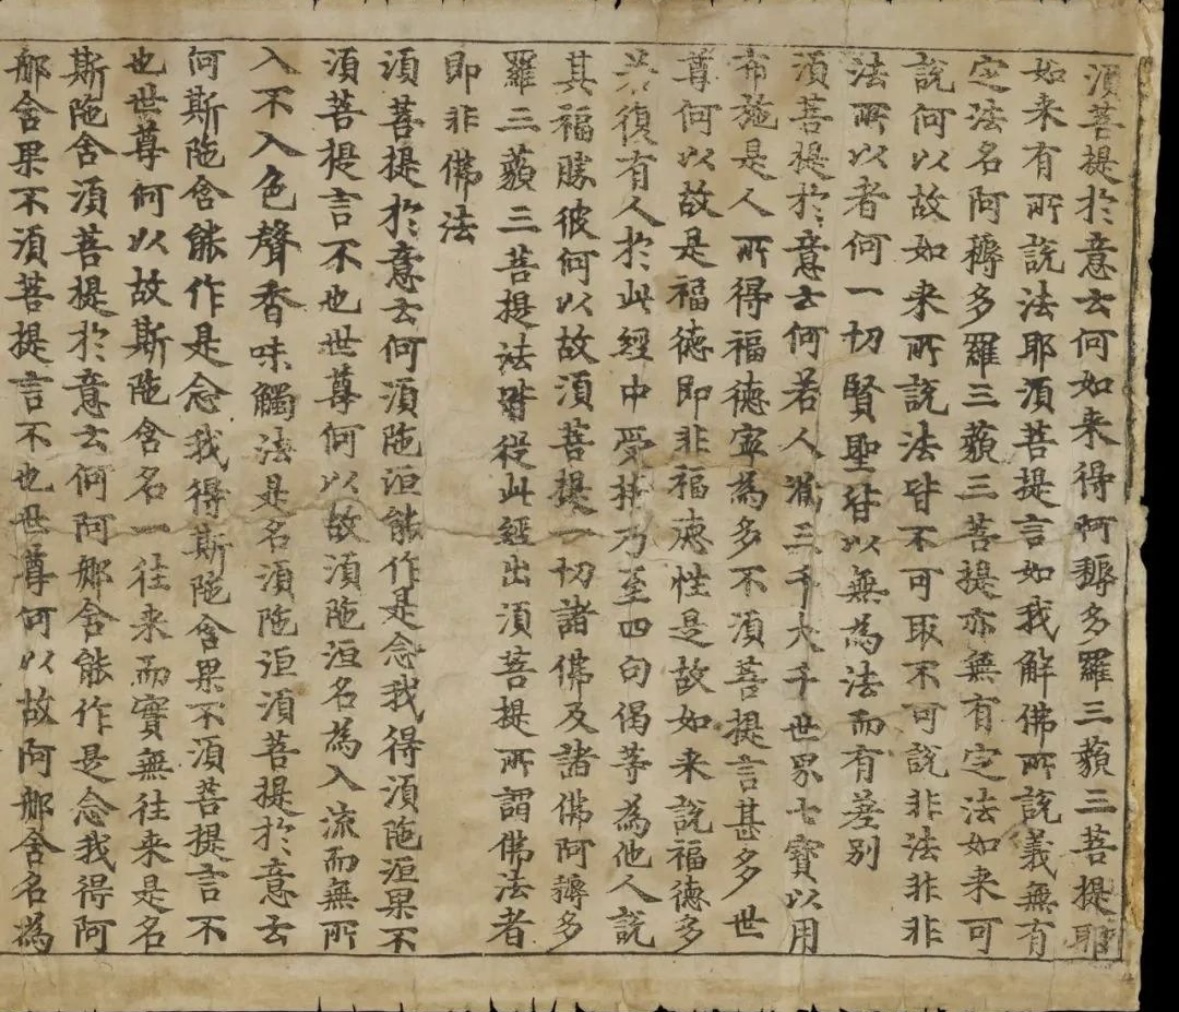 須菩提於意云何如来得阿耨多羅三藐三菩提耶
如来有所說法耶須菩提言如我解佛所說義無有
定法名阿耨多羅三藐三菩提亦無有定法如来可
說何以故如来所說法皆不可取不可說非法非非
法所以者何一切賢聖皆以無為法而有差別
須菩提於意云何若人滿三千大千世界七寶以用
布施是人所得福德寧為多不須菩提言甚多世
尊何以故是福德即非福德性是故如来說福德多
若復有人於此經中受持乃至四句偈等為他人說
其福勝彼何以故須菩提一切諸佛及諸佛阿耨多
羅三藐三菩提法皆從此經出須菩提所謂佛法者
即非佛法
須菩提於意云何須陁洹能作是念我得須陁洹果不
須菩提言不也世尊何以故須陁洹名為入流而無所
入不入色聲香味觸法是名須陁洹須菩提於意云
何斯陁含能作是念我得斯陁含果不須菩提言不
也世尊何以故斯陁含名一往来而實無往来是名
斯陁含須菩提於意云何阿那含能作是念我得阿
那含果不須菩提言不也世尊何以故阿那含名為